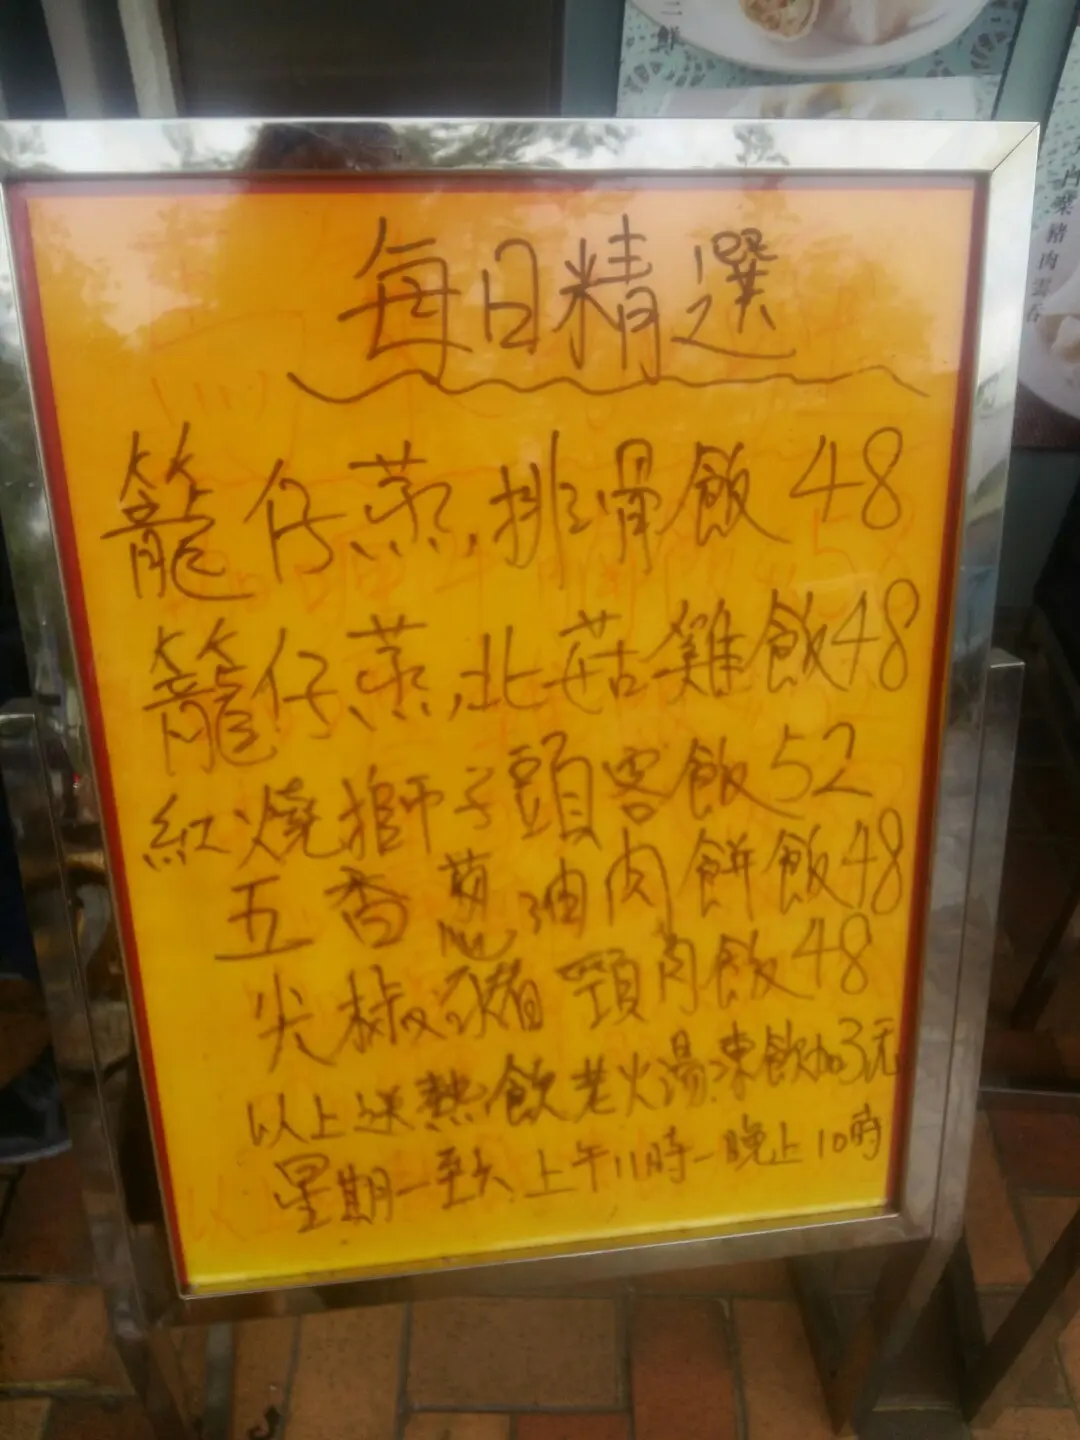 三鮮
白菜豬肉雲吞
每日精選
籠仔蒸排骨飯 48
籠仔蒸北菇雞飯 48
紅燒獅子頭客飯 52
五香蔥油肉餅飯 48
尖椒豬頸肉飯 48
以上送熱飲老火湯凍飲加3元
星期一至六 上午11時-晚上10時